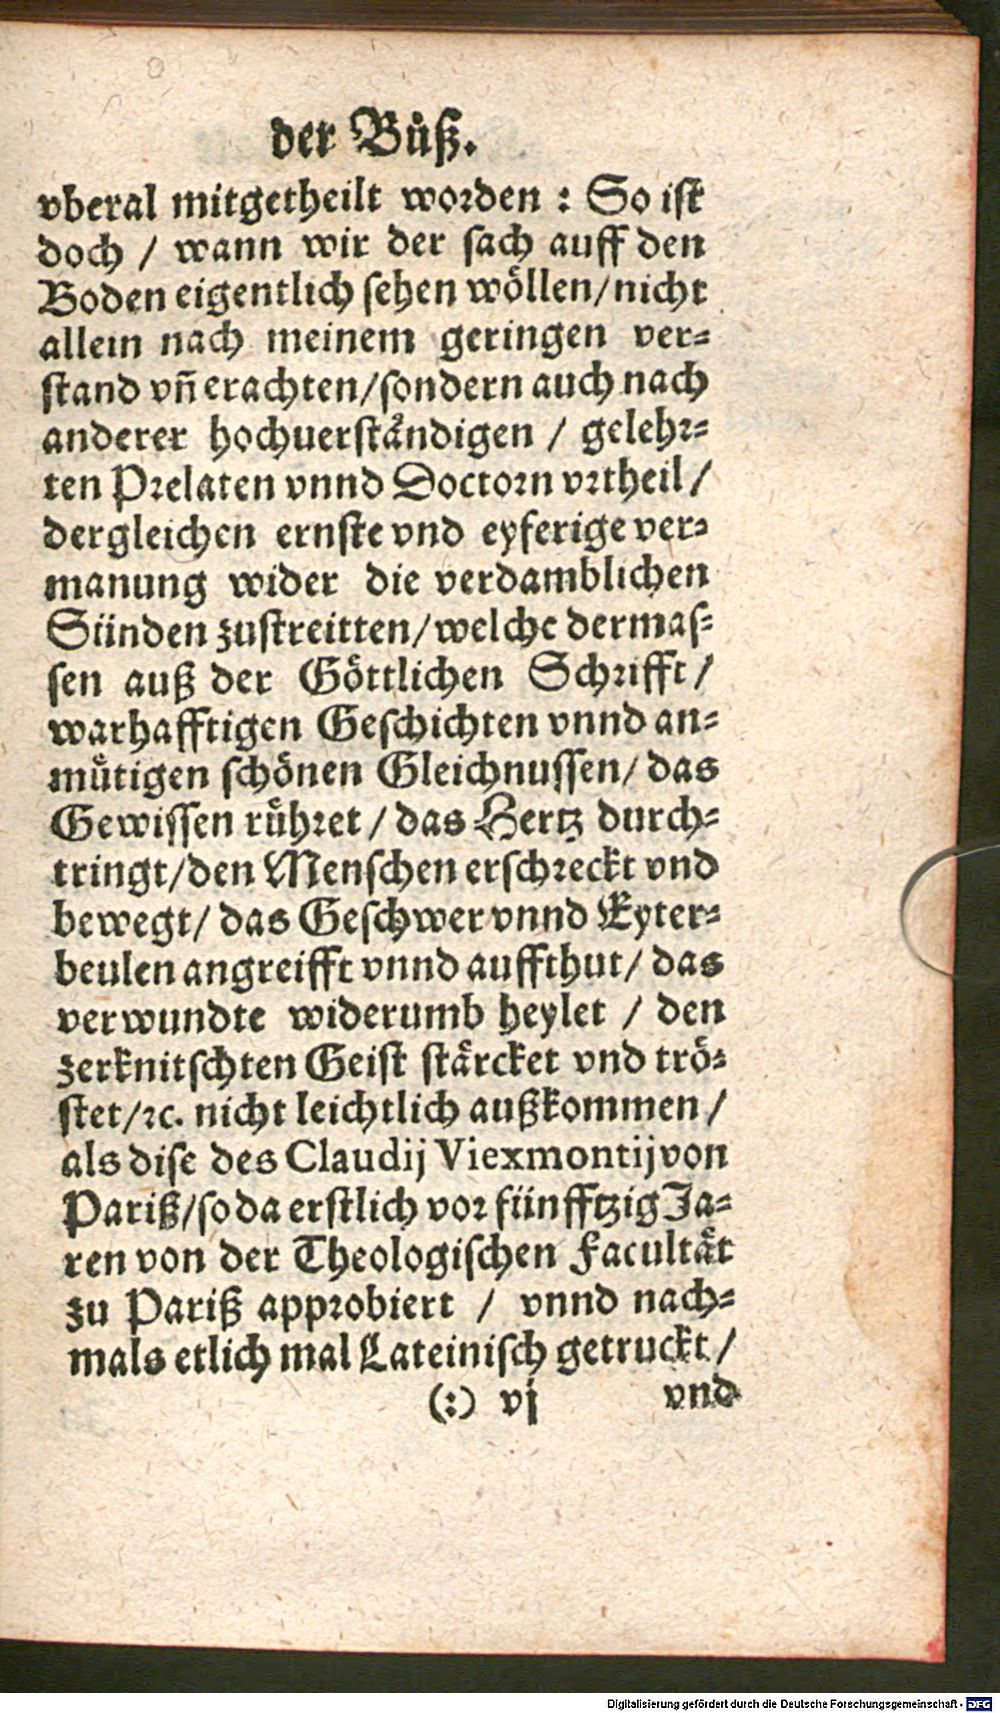 der Bůß.
vberal mitgetheilt worden : So ist
doch / wann wir der sach auff den
Boden eigentlich sehen wöllen/nicht
allein nach meinem geringen ver⸗
stand vñ erachten/sondern auch nach
anderer hochuerständigen / gelehr⸗
ten Prelaten vnnd Doctorn vrtheil/
dergleichen ernste vnd eyferige ver⸗
manung wider die verdamblichen
Sünden zustreitten/welche dermas⸗
sen auß der Göttlichen Schrifft/
warhafftigen Geschichten vnnd an⸗
mütigen schönen Gleichnussen/ das
Gewissen rühret / das Hertz durch⸗
tringt/den Menschen erschreckt vnd
bewegt/ das Geschwer vnnd Eyter⸗
beulen angreifft vnnd auffthut/ das
verwundte widerumb heylet / den
zerknitschten Geist stärcket vnd trö⸗
stet/ꝛc. nicht leichtlich außkommen /
als dise des Claudij Viexmontij von
Pariß/so da erstlich vor fünfftzig Ja⸗
ren von der Theologischen Facultät
zu Pariß approbiert / vnnd nach⸗
mals etlich mal Lateinisch getruckt /
(:) vj vnd
Digitalisierung gefördert durch die Deutsche Forschungsgemeinschaft - DFG